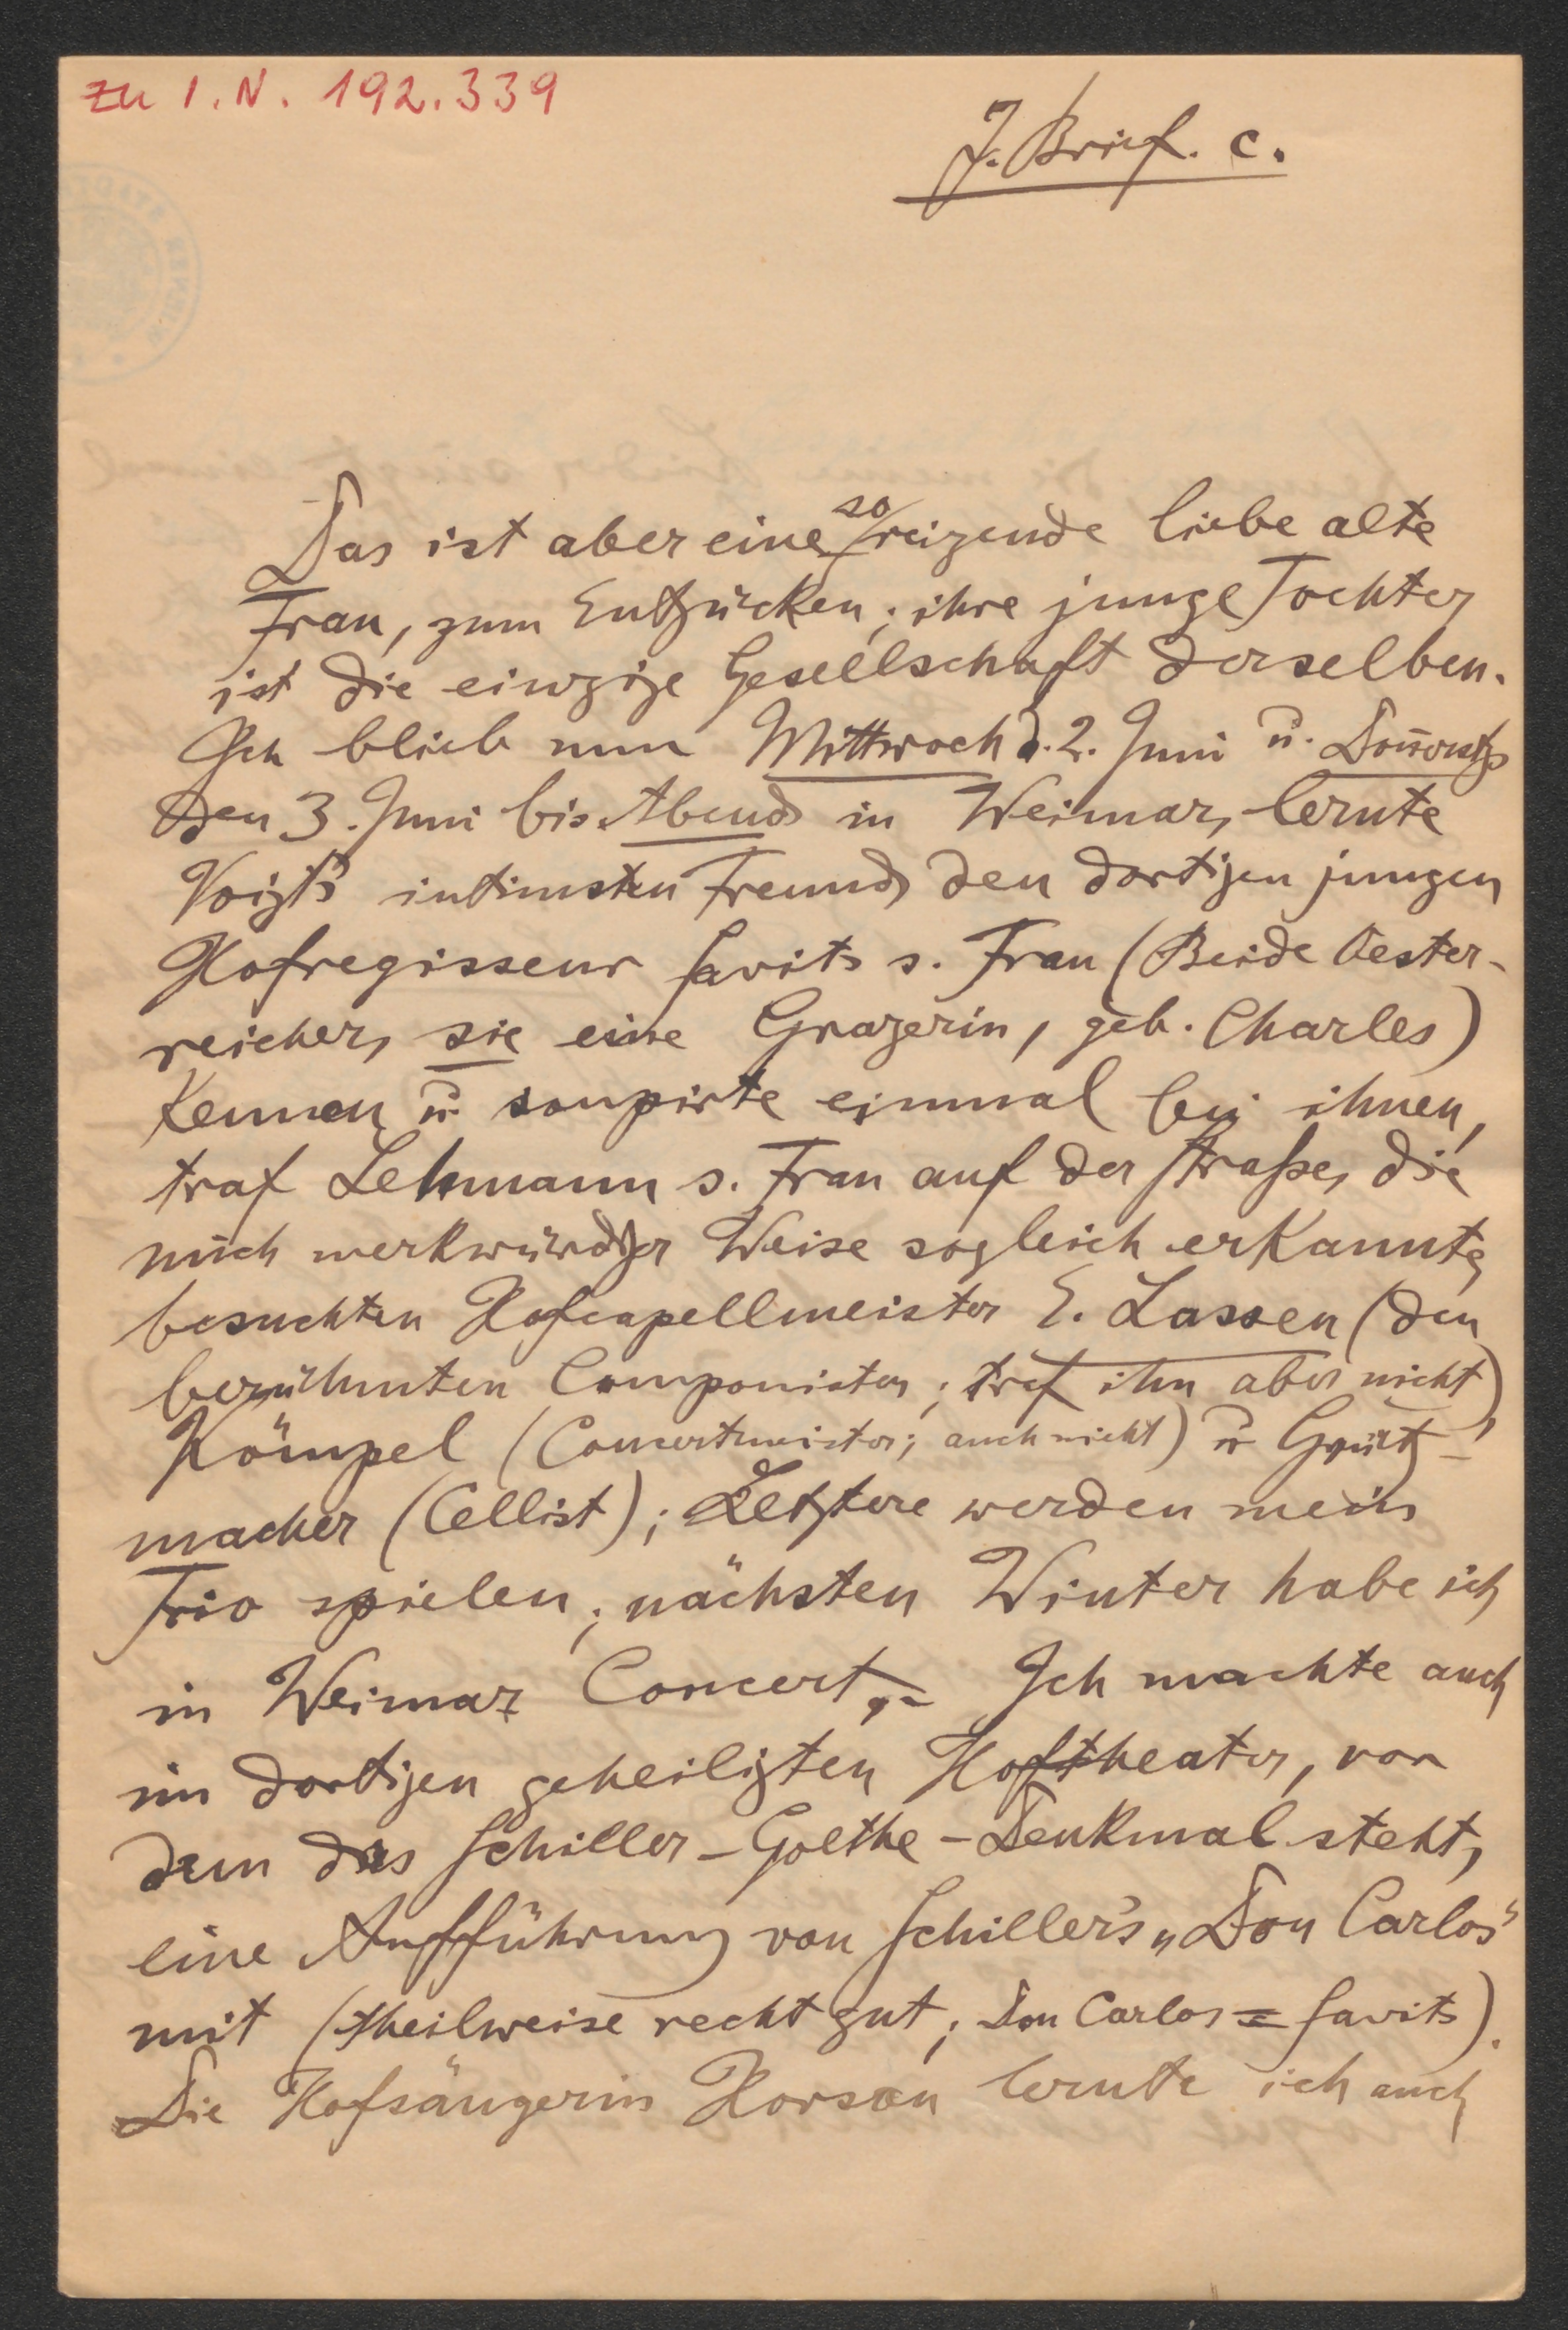 zu I.N. 192.339
J. Brief. c.
Das ist aber eine so reizende liebe alte
Frau, zum Entzücken; ihre junge Tochter
ist die einzige Gesellschaft derselben.
Ich blieb nun Mittwoch d. 2. Juni u. Don̄erstg
den 3. Juni bis Abend in Weimar, lernte
Voigt's intimsten Freund, den dortigen jungen
Hofregisseur Savits s. Frau (Beide Oester-
reicher, sie eine Grazerin, geb. Charles)
kennen u. soupirte einmal bei ihnen,
traf Lehmann s. Frau auf der Straße, die
mich merkwürdger Weise sogleich erkannte,
besuchten Hofcapellmeister E. Lassen (den
berühmten Componisten; traf ihn aber nicht),
Kömpel (Concertmeister; auch nicht) u Grütz-
macher (Cellist); Letztere werden mein
Trio spielen; nächsten Winter habe ich
in Weimar Concert. – Ich machte auch
im dortigen geheiligten Hoftheater, vor
dem das Schiller-Goethe-Denkmal steht,
eine Aufführung von Schiller's „Don Carlos"
mit (theilweise recht gut; Don Carlos = Savits).
Die Hofsängerin Horson lernte ich auch